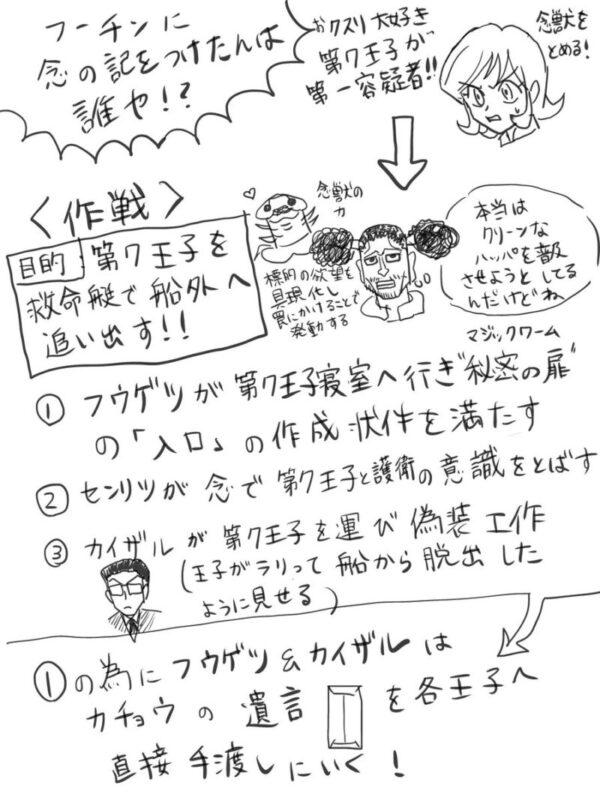 フーチンに
念の記をつけたんは
誰や!?
おクスリ大好き
第7王子が
第一容疑者!!
念獣を
とめる!
〈作戦〉
目的 第7王子を
救命艇で船外へ
追い出す!!
念獣の
力
標的の欲望を
具現化し
罠にかけることで
発動する
本当は
クリーンな
ハッパを
させようとしてる
んだけどね
マジックワーム
① フウゲツが第7王子寝室へ行き"秘密の扉"
の「入口」の作成状件を満たす
② センリツが念で第7王子と護衛の意識をとばす
③ カイザルが第7王子を運び偽装工作
(王子がラリって船から脱出した
ように見せる)
①の為にフウゲツ&カイザルは
カチョウの遺言を各王子へ
直接手渡しにいく!